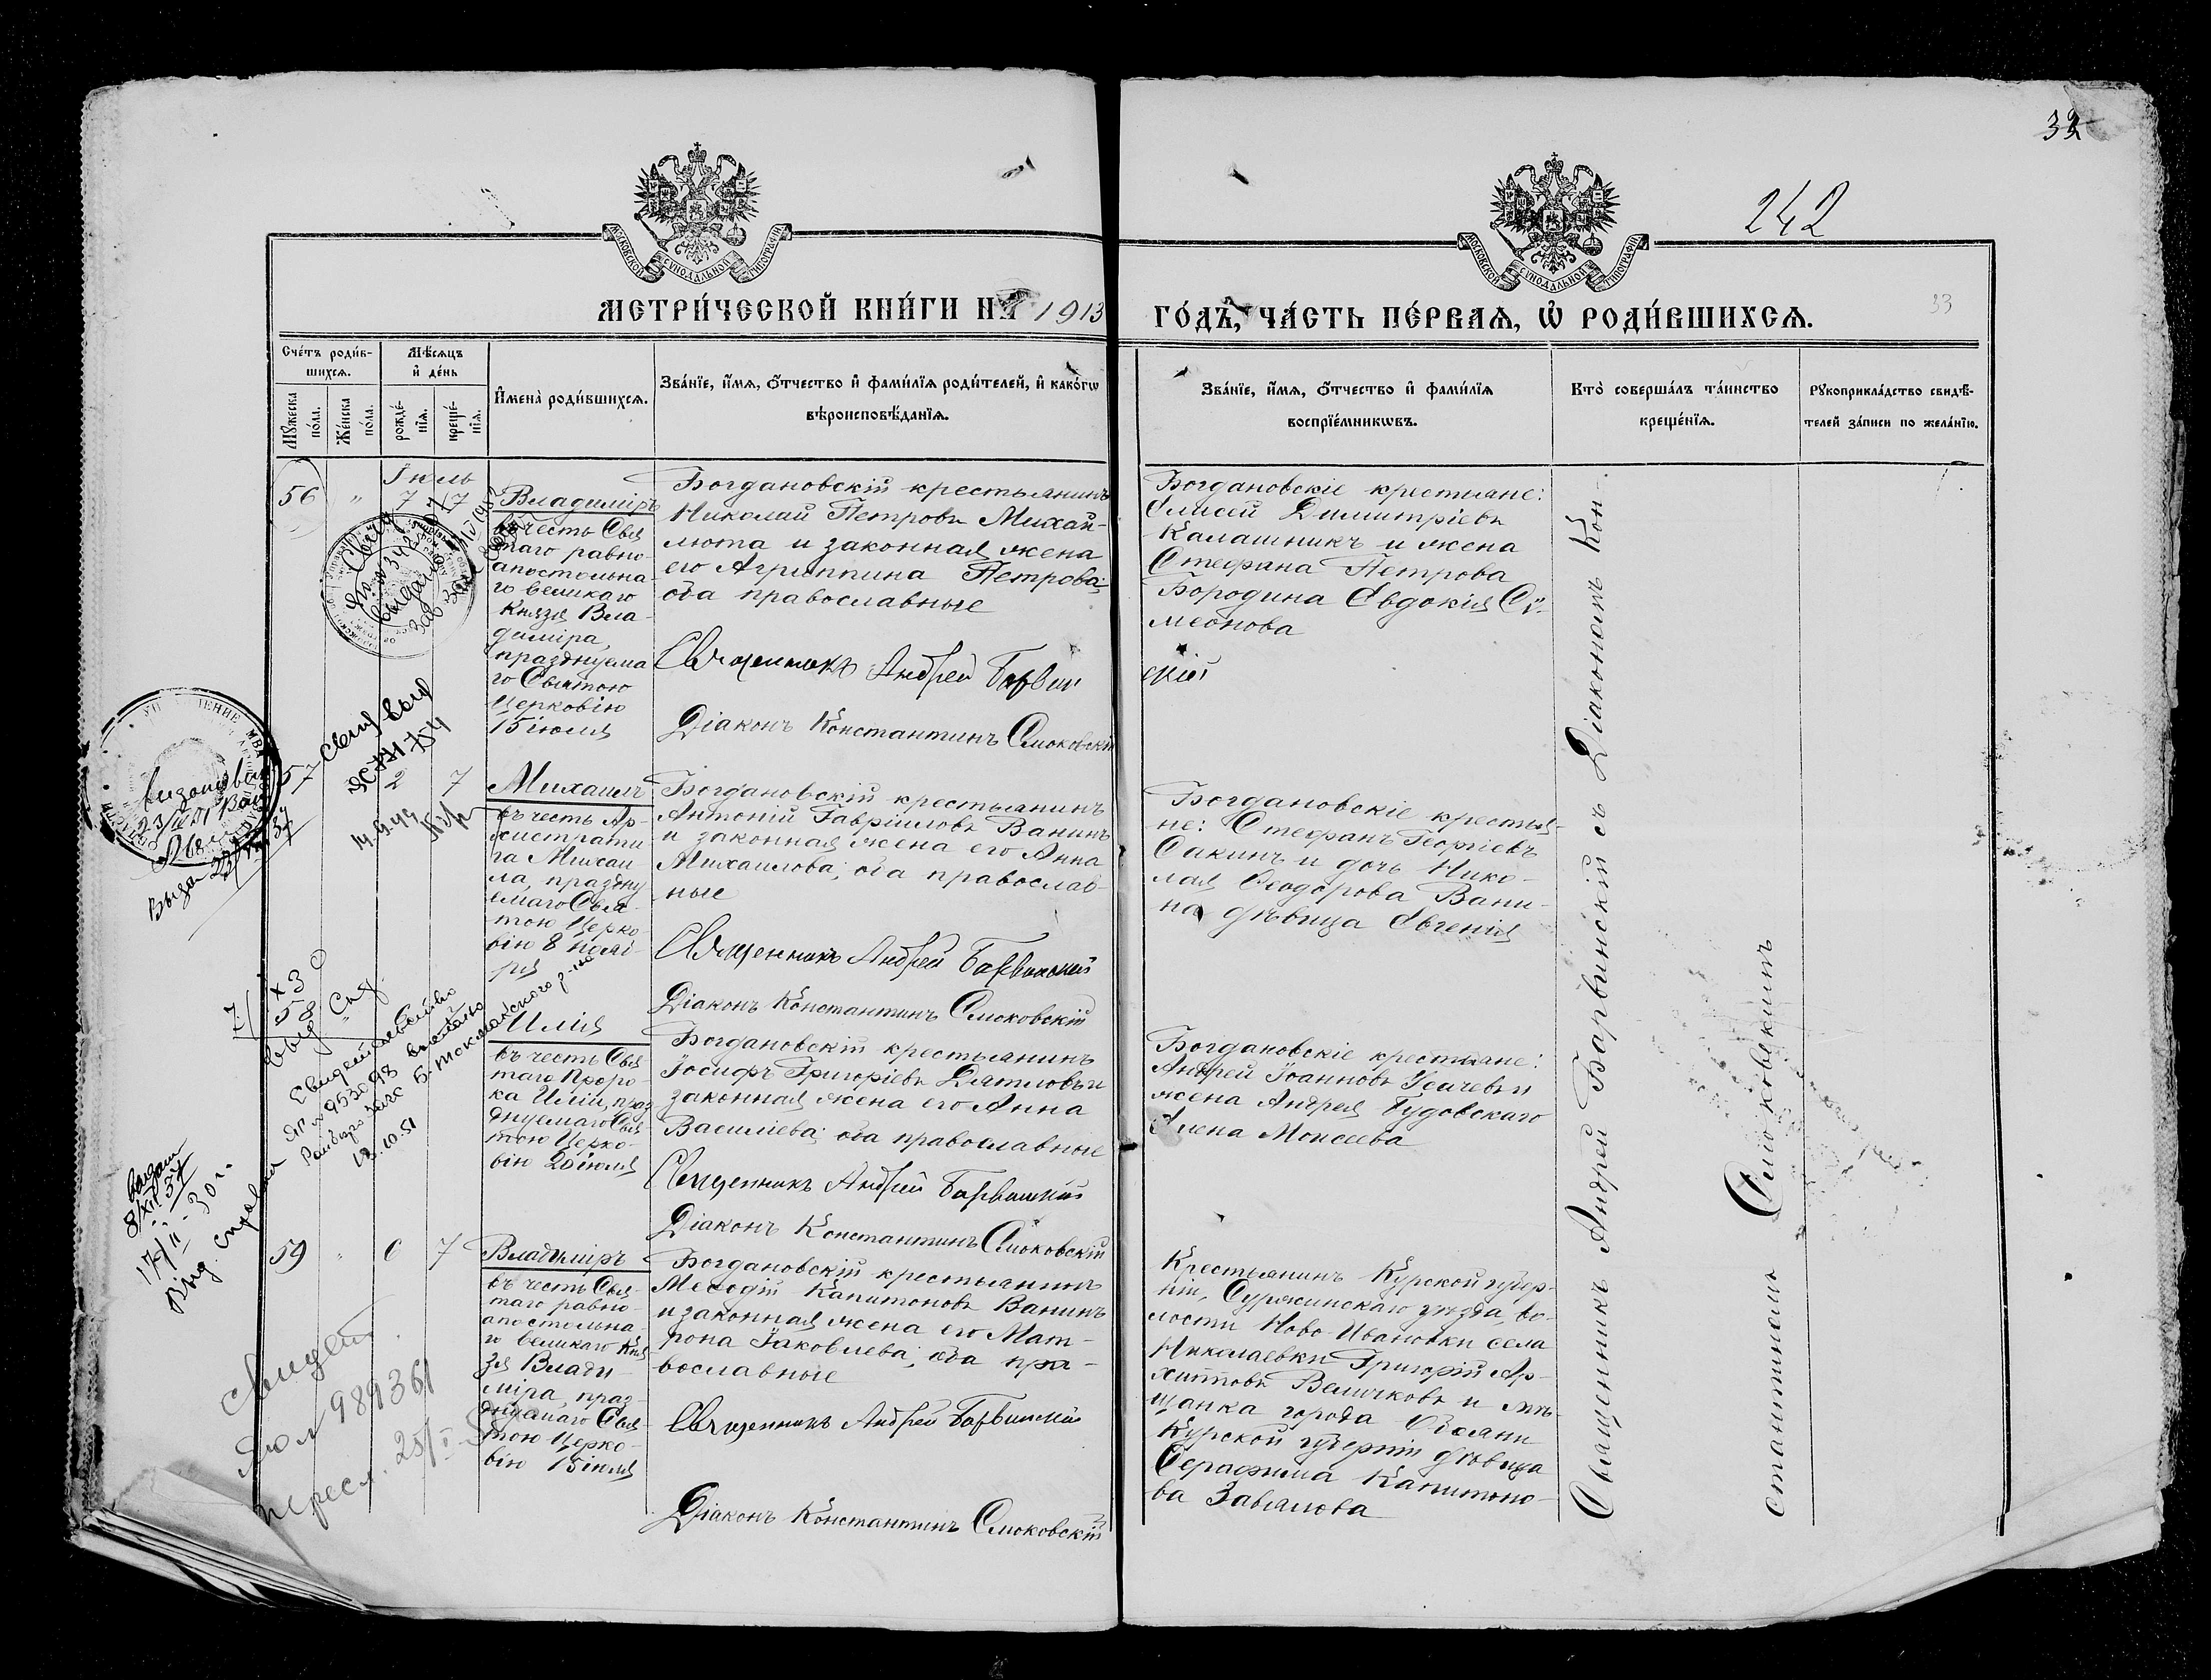 33
242
33
МОСКОВСКОЙ СѴНОДАЛЬНОЙ ТИПОГРАФІИ
МОСКОВСКОЙ СѴНОДАЛЬНОЙ ТИПОГРАФІИ
МЕТРИ́ЧЕСКОЙ КНИ́ГИ НА 1913
ГО́ДЪ, ЧА́СТЬ ПЕ́РВАѦ, Ѡ҆ РОДИ́ВШИХСѦ.
Сче́тъ роди́в-
шихсѧ.
Мꙋжеска по́ла.
Же́нска по́ла.
Мѣ́сѧцъ
и҆ де́нь
рожде́-
нїѧ.
креще́-
нїѧ.
И҆мена̀ роди́вшихсѧ.
Зва́нїе, и҆́мѧ, ѻ҆́тчество и҆ фами́лїѧ роди́телей, и҆ како́гѡ
вѣроисповѣ́данїѧ.
Зва́нїе, и҆́мѧ, ѻ҆́тчество и҆ фами́лїѧ
воспрїе́мникѡвъ.
Кто̀ соверша́лъ та́инство
креще́нїѧ.
Рꙋкоприкла́дство свидѣ́-
телей за́писи по жела́нїю.
Іюль
56 " 7 7
Владиміръ
въ честь Свя
таго равно-
апостольна-
го великаго
Князя Вла-
диміра,
празднуема
го Святою
Церковію
15 іюля
Богдановскій крестьянинъ
Николай Петровъ Михай-
люта и законная жена
его Агриппина Петрова;
оба православные
Священникъ Андрей Барвин
скій
Діаконъ Константинъ Смоковскій
Богдановскіе крестьяне:
Елисей Димитріевъ
Калашникъ и жена
Стефана Петрова
Бородина Евдокія Сѵ-
меонова
57 2 7
Михаилъ
въ честь Ар-
хистрати
га Михаи
ла, праздну
емаго Свя-
тою Церко-
вію 8 нояб-
ря
Богдановскій крестьянинъ
Антоній Гавріиловъ Ванинъ
и законная жена его Анна
Михаилова; оба православ-
ные
Священникъ Андрей Барвинскій
Діаконъ Константинъ Смоковскій
Богдановскіе крестья-
не: Стефанъ Георгіевъ
Сакинъ и дочь Нико-
лая Ѳеодорова Вани-
на дѣвица Евгенія
58
Илія
въ честь Свя
таго Проро-
ка Иліи, праз
днуемаго Свя
тою Церко-
вію 20 іюля
Богдановскій крестьянинъ
Іосифъ Григоріевъ Дятловъ и
законная жена его Анна
Василіева; оба православные
Священникъ Андрей Барвинскій
Діаконъ Константинъ Смоковскій
Богдановскіе крестьяне:
Андрей Іоанновъ Усачевъ и
жена Андрея Будовскаго
Елена Моисеева
59 " 6 7
Владиміръ
въ честь Свя-
таго равно-
апостольна-
го великаго Кня
зя Влади-
міра, праз-
днуемаго Свя-
тою Церко-
вію 15 іюля
Богдановскій крестьянинъ
Меѳодій Капитоновъ Ванинъ
и законная жена его Мат-
рона Іаковлева; оба пра-
вославные
Священникъ Андрей Барвинскій
Діаконъ Константинъ Смоковскій
Крестьянинъ Курской губер-
ніи, Суржинскаго уѣзда, во-
лости Ново-Ивановки села
Николаевки Григорій Ар-
хиповъ Величковъ и мѣ-
щанка города Обояни
Курской губерніи дѣвица
Серафима Капитоно-
ва Завялова
Священникъ Андрей Барвинскій съ Діакономъ Кон
стантиномъ Смоковскимъ
14.9.44
Свидетельство
ЯР № 953098 выдано
Райбюро ЗАГС Б-Токмакского р-на
18.10.51
17/II-30 г.
Выд. справка
Свидет.
ЯЮ № 989361
перес. 25/I-58